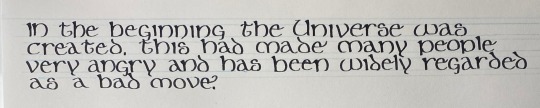 In the beginning the Universe was
created. this had made many people
very angry and has been widely regarded
as a bad move?